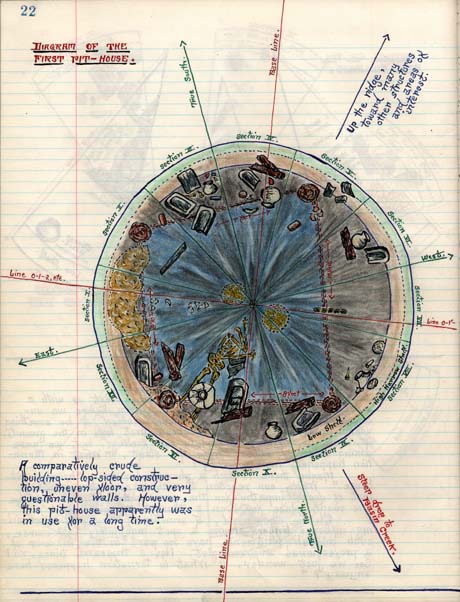 22
DIAGRAM OF THE
FIRST PIT-HOUSE.
True South.
Base Line.
Up the ridge,
toward many
other structures
and areas of
interest.
Section
Section
Section
Section
Section I.
Line 0-1-2, etc.
West.
Line 0-1-
Section
East.
High Narrow Shelf
Section
Section
8 feet
Low Shelf
Section
Section X.
Section
A comparatively crude
building-----lop-sided construc-
tion, uneven floor, and very
questionable walls. However,
this pit-house apparently was
in use for a long time.
True North.
Base Line.
Steep drop to
Basin Creek.